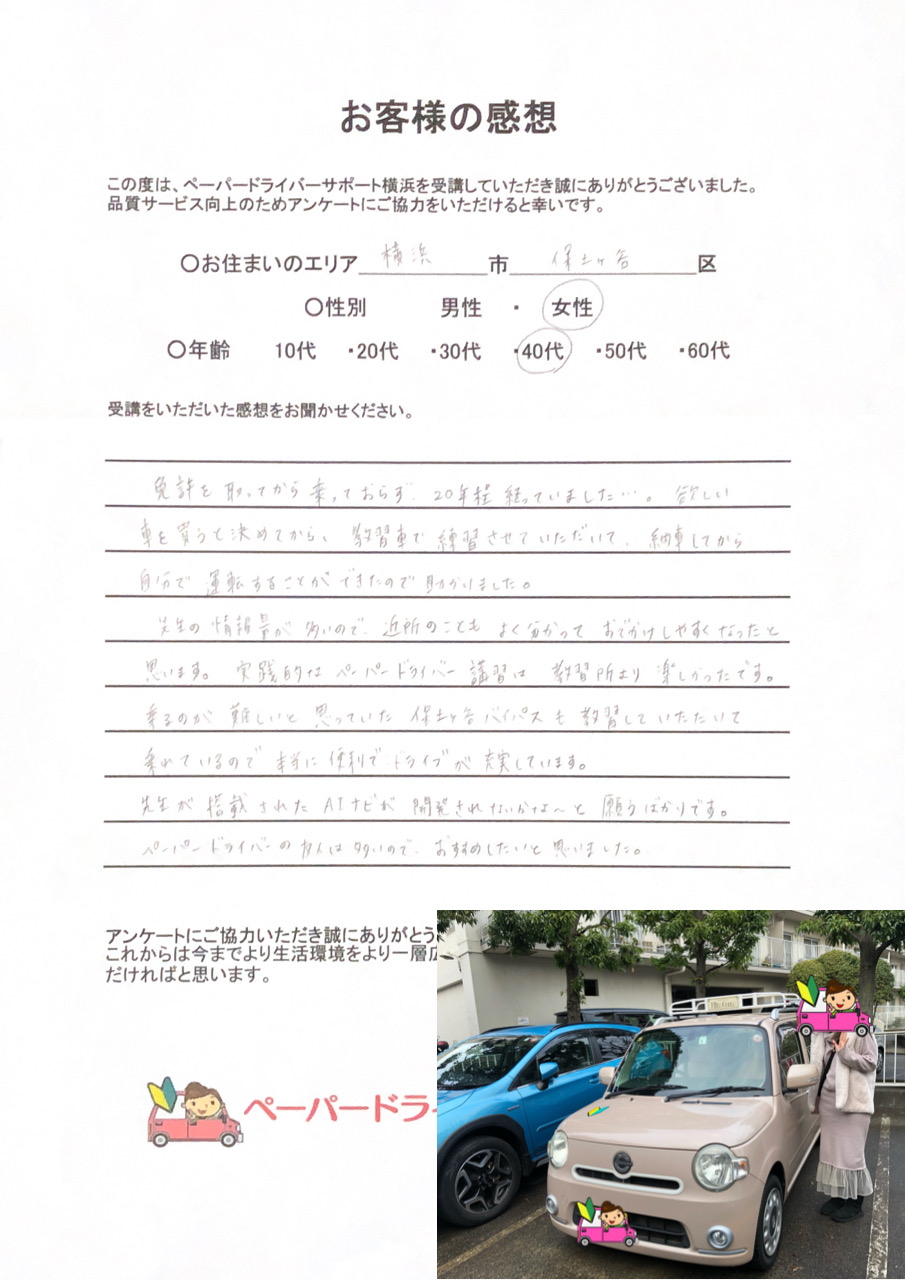 お客様の感想
この度は、ペーパードライバーサポート横浜を受講していただき誠にありがとうございました。
品質サービス向上のためアンケートにご協力をいただけると幸いです。
〇お住まいのエリア 横浜 市 保土ヶ谷 区
〇性別 男性 ・ 女性
〇年齢 10代 ・20代 ・30代 ・40代 ・50代 ・60代
受講をいただいた感想をお聞かせください。
免許を取ってから乗っておらず、20年程経っていました…。欲しい
車を買うと決めてから、教習車で練習させていただいて、納車してから
自分で運転することができたので助かりました。
先生の情報量が多いので、近所のこともよく分かっておでかけしやすくなったと
思います。実践的なペーパードライバー講習は教習所より楽しかったです。
乗るのが難しいと思っていた保土ヶ谷バイパスも教習していただいて
乗れているので本当に便利でドライブが充実しています。
先生が搭載されたAIナビが開発されないかな〜と願うばかりです。
ペーパードライバーの友人は多いので、おすすめしたいと思いました。
アンケートにご協力いただき誠にありがとう
これからは今までより生活環境をより一層広
だければと思います。
ペーパードライ